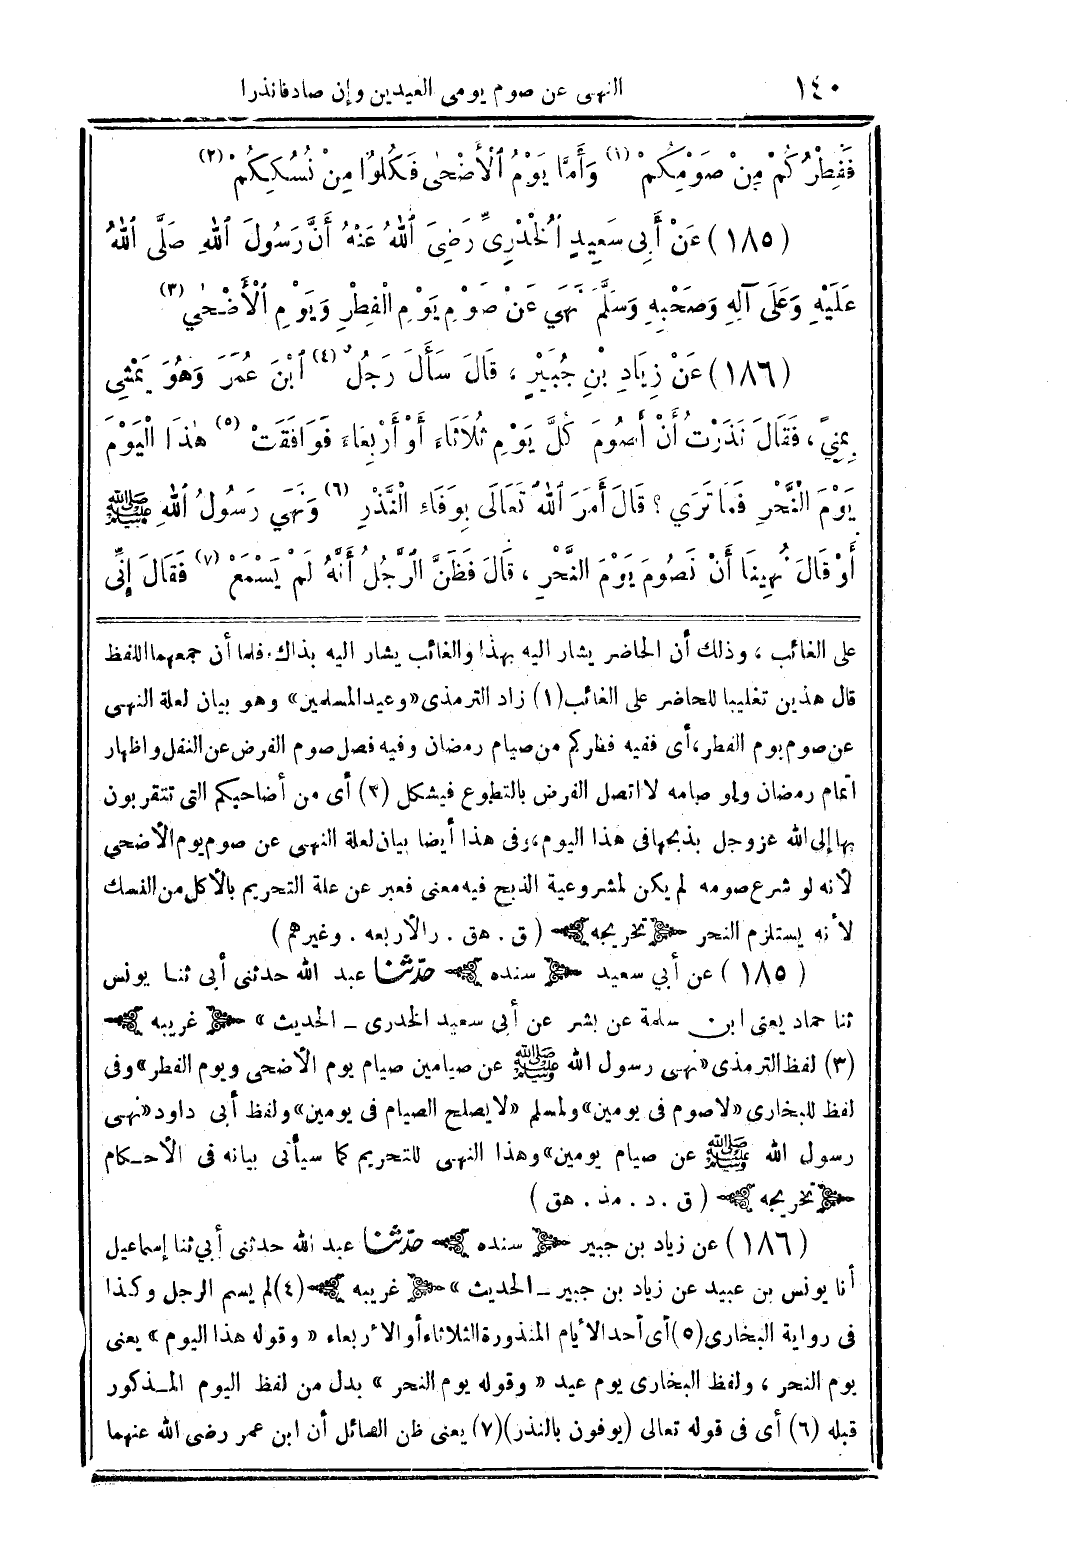 ١٤٠ النهى عن صوم يومى العيدين وإن صادفا نذرا
فَفِطْرُكُمْ مِنْ صَوْمِكُمْ (١) وَأَمَّا يَوْمُ الْأَضْحٰى فَكُلُوا مِنْ نُسُكِكُمْ (٢)
(١٨٥) عَنْ أَبِى سَعِيدٍ الْخُدْرِىِّ رَضِىَ اللهُ عَنْهُ أَنَّ رَسُولَ اللهِ صَلَّى اللهُ
عَلَيْهِ وَعَلَى آلِهِ وَصَحْبِهِ وَسَلَّمَ نَهَى عَنْ صَوْمِ يَوْمِ الْفِطْرِ وَيَوْمِ الْأَضْحٰى (٣)
(١٨٦) عَنْ زِيَادِ بْنِ جُبَيْرٍ ، قَالَ سَأَلَ رَجُلٌ (٤) ابْنَ عُمَرَ وَهُوَ يَمْشِى
بِمِنىً ، فَقَالَ نَذَرْتُ أَنْ أَصُومَ كُلَّ يَوْمِ ثُلَاثَاءَ أَوْ أَرْبِعَاءَ فَوَافَقَتْ (٥) هٰذَا الْيَوْمَ
يَوْمَ النَّحْرِ فَمَا تَرَي ؟ قَالَ أَمَرَ اللهُ تَعَالَى بِوَفَاءِ النَّذْرِ (٦) وَنَهَي رَسُولُ اللهِ ﷺ
أَوْ قَالَ نُهِينَا أَنْ نَصُومَ يَوْمَ النَّحْرِ ، قَالَ فَظَنَّ الرَّجُلُ أَنَّهُ لَمْ يَسْمَعْ (٧) فَقَالَ إِنِّى
على الغائب ، وذلك أن الحاضر يشار اليه بهذا والغائب يشار اليه بذاك . فلما أن جمعهما اللفظ
قال هذين تغليبا للحاضر على الغائب (١) زاد الترمذى «وعيد المسلمين» وهو بيان لعلة النهى
عن صوم يوم الفطر، أى ففيه فطركم من صيام رمضان وفيه فصل صوم الفرض عن النفل واظهار
اتمام رمضان ولو صامه لا اتصل الفرض بالتطوع فيشكل (٢) أى من أضاحيكم التى تتقربون
بها إلى الله عز وجل بذبحها فى هذا اليوم، وفى هذا أيضا بيان لعلة النهى عن صوم يوم الأضحي
لأنه لو شرع صومه لم يكن لمشروعية الذبح فيه معنى فعبر عن علة التحريم بالأكل من النسك
لأنه يستلزم النحر ﴿ تخريجه ﴾ (ق . هق . والأربعه . وغيرهم)
(١٨٥) عن أبي سعيد ﴿ سنده ﴾ حدّثنا عبد الله حدثنى أبى ثنا يونس
ثنا حماد يعنى ابن سلمة عن بشر عن أبي سعيد الخدرى ــ الحديث » ﴿ غريبه ﴾
(٣) لفظ الترمذى «نهى رسول الله ﷺ عن صيامين صيام يوم الأضحى ويوم الفطر» وفى
لفظ للبخارى «لا صوم فى يومين» ولمسلم «لا يصلح الصيام فى يومين» ولفظ أبى داود «نهى
رسول الله ﷺ عن صيام يومين» وهذا النهى للتحريم كما سيأتى بيانه فى الأحكام
﴿ تخريجه ﴾ (ق . د . مذ . هق)
(١٨٦) عن زياد بن جبير ﴿ سنده ﴾ حدّثنا عبد الله حدثنى أبي ثنا إسماعيل
أنا يونس بن عبيد عن زياد بن جبير ــ الحديث » ﴿ غريبه ﴾ (٤) لم يسم الرجل وكذا
فى رواية البخارى (٥) أى أحد الأيام المنذورة الثلاثاء أو الأربعاء « وقوله هذا اليوم » يعنى
يوم النحر ، ولفظ البخارى يوم عيد « وقوله يوم النحر » بدل من لفظ اليوم المــذكور
قبله (٦) أى فى قوله تعالى (يوفون بالنذر) (٧) يعنى ظن السائل أن ابن عمر رضى الله عنهما